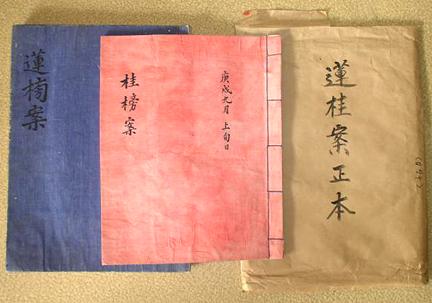 蓮榜案
庚戌九月 上旬日
桂榜案
蓮桂案正本